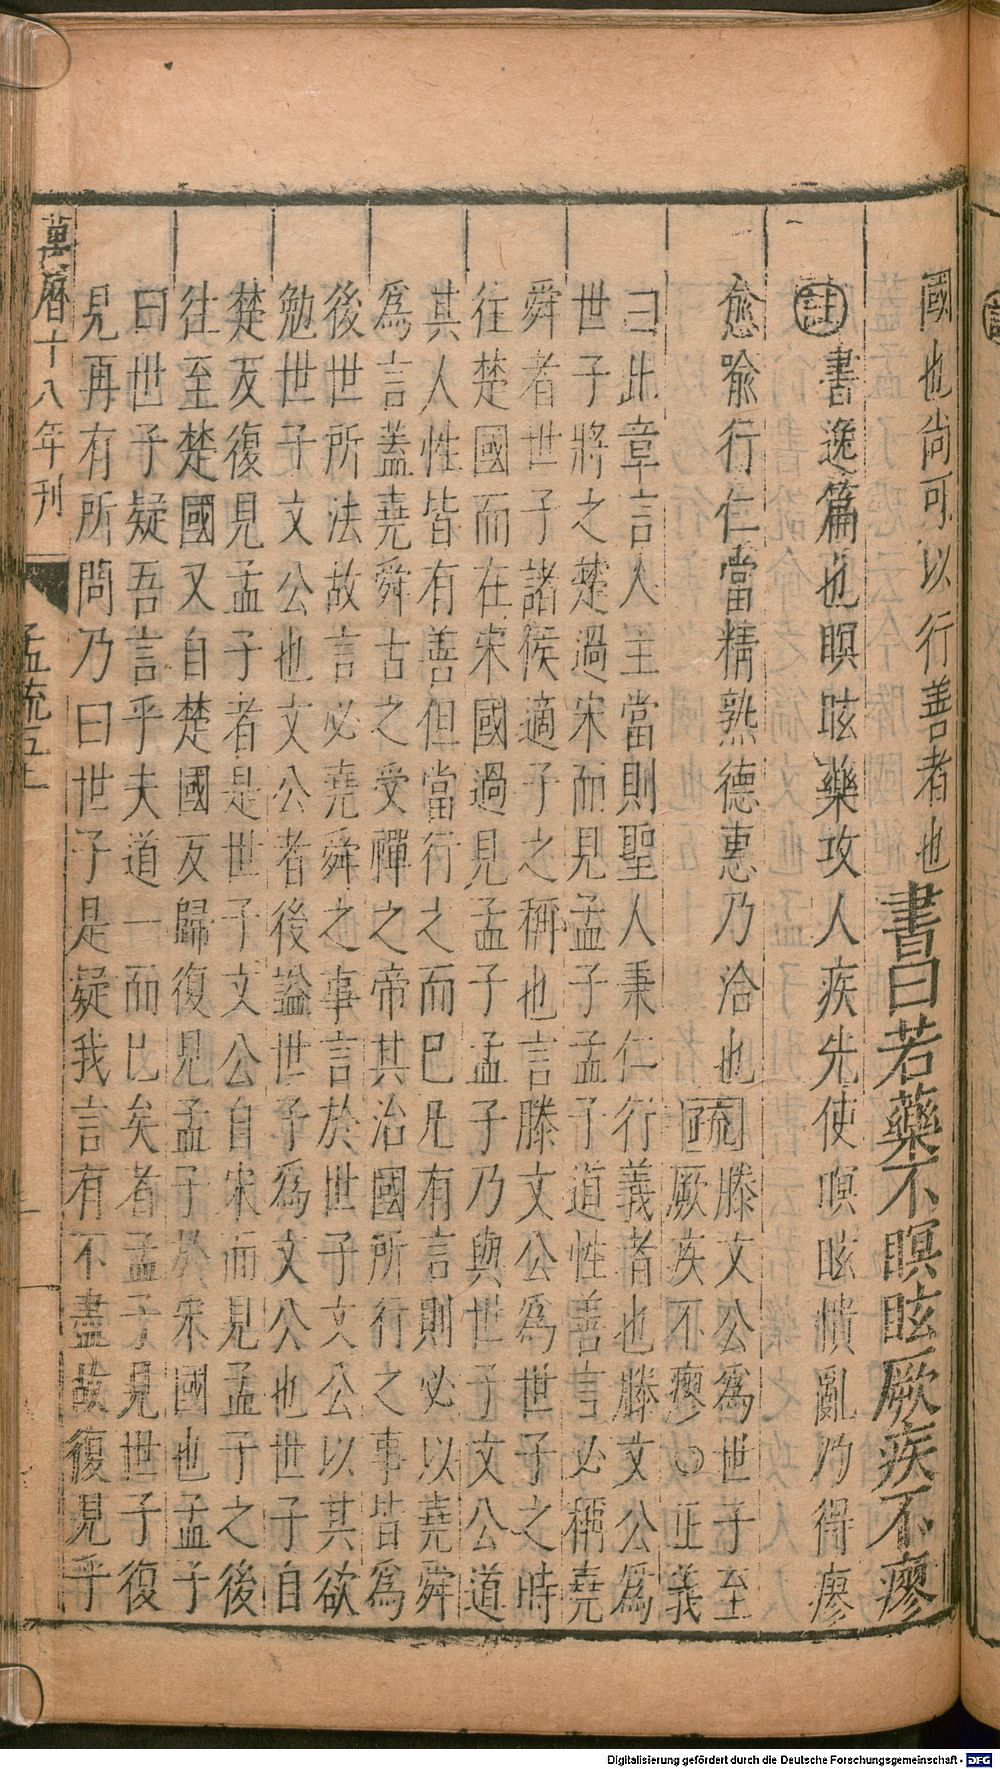 國也尙可以行善者也書曰若藥不瞑眩厥疾不瘳
註書逸篇也瞑眩藥攻人疾先使瞑眩憒亂乃得瘳
愈喻行仁當精熟德惠乃洽也疏滕文公為世子至
厥疾不瘳○正義
曰此章言人主當則聖人秉仁行義者也滕文公為
世子將之楚過宋而見孟子孟子道性善言必稱堯
舜者世子諸侯適子之稱也言滕文公為世子之時
往楚國而在宋國過見孟子孟子乃與世子文公道
其人性皆有善但當行之而已凡有言則必以堯舜
為言蓋堯舜古之受禪之帝其治國所行之事皆為
後世所法故言必堯舜之事言於世子文公以其欲
勉世子文公也文公者後謚世子為文公也世子自
楚反復見孟子者是世子文公自宋而見孟子之後
往至楚國又自楚國反歸復見孟子於宋國也孟子
曰世子疑吾言乎夫道一而已矣者孟子見世子復
見再有所問乃曰世子是疑我言有不盡故復見乎
萬曆十八年刊
孟疏五上
Digitalisierung gefördert durch die Deutsche Forschungsgemeinschaft - DFG